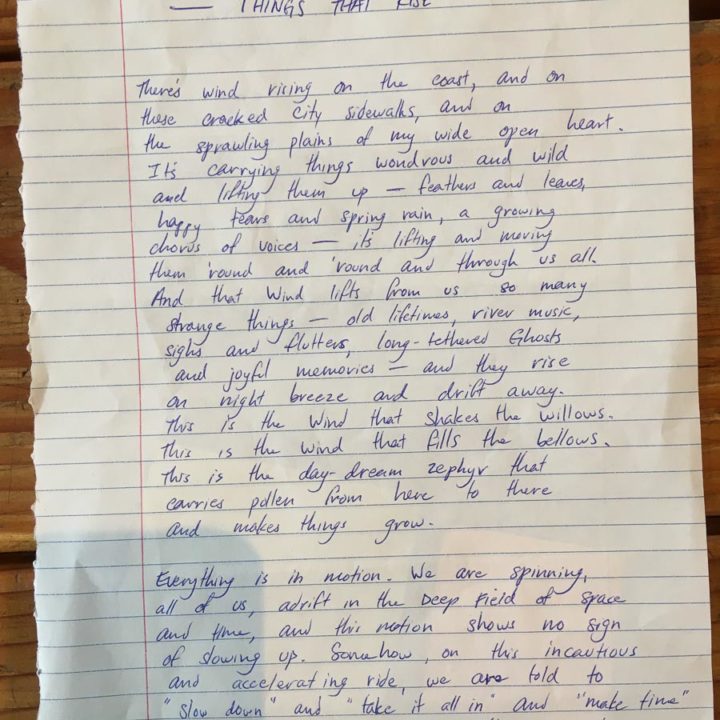 — THINGS THAT RISE
There's wind rising on the coast, and on
these cracked city sidewalks, and on
the sprawling plains of my wide open heart.
It's carrying things wondrous and wild
and lifting them up — feathers and leaves,
happy tears and spring rain, a growing
chorus of voices — it's lifting and moving
them 'round and 'round and through us all.
And that wind lifts from us so many
strange things — old lifetimes, river music,
sighs and flutters, long-tethered Ghosts
and joyful memories — and they rise
on night breeze and drift away.
This is the wind that shakes the willows.
This is the wind that fills the bellows.
This is the day-dream zephyr that
carries pollen from here to there
and makes things grow.
Everything is in motion. We are spinning,
all of us, adrift in the Deep Field of space
and time, and this motion shows no sign
of slowing up. Somehow, on this incautious
and accelerating ride, we are told to
"slow down" and "take it all in" and "make time"